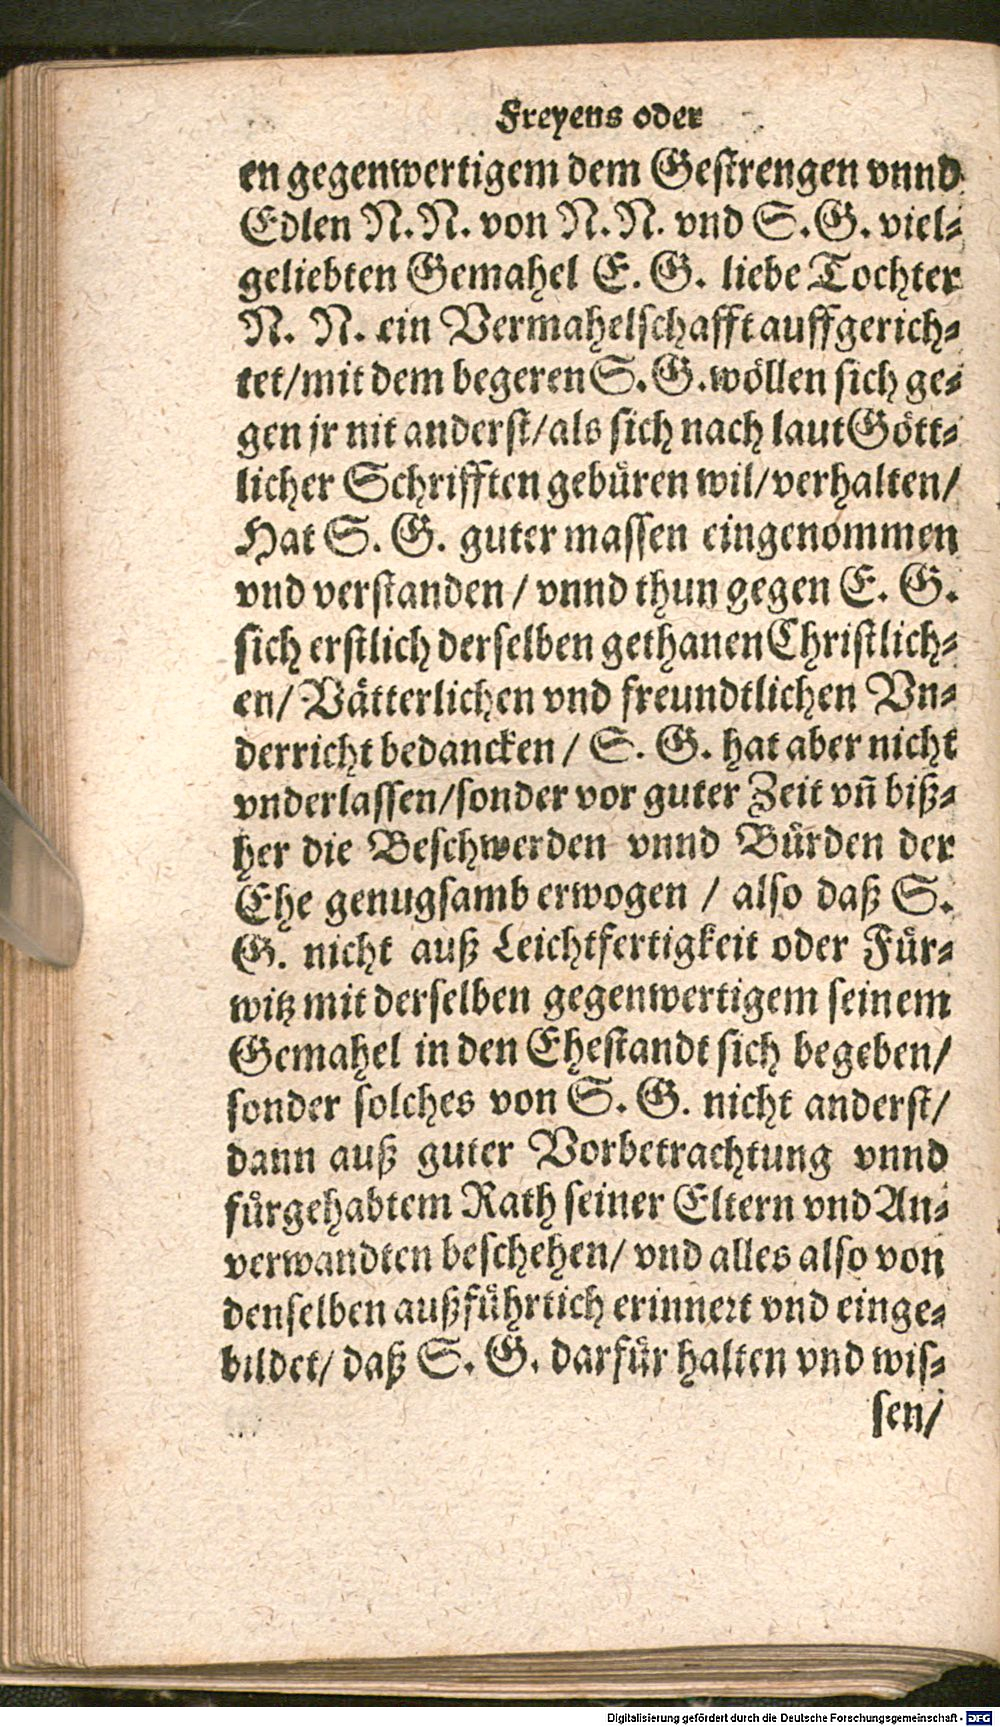 Freyens oder
en gegenwertigem dem Gestrengen vnnd
Edlen N. N. von N. N. vnd S. G. viel-
geliebten Gemahel E. G. liebe Tochter
N. N. ein Vermahelschafft auffgerich-
tet/ mit dem begeren S. G. wöllen sich ge-
gen jr nit anderst/ als sich nach laut Gött-
licher Schrifften gebüren wil/ verhalten/
Hat S. G. guter massen eingenommen
vnd verstanden/ vnnd thun gegen E. G.
sich erstlich derselben gethanen Christlich-
en/ Vätterlichen vnd freundtlichen Vn-
derricht bedancken/ S. G. hat aber nicht
vnderlassen/ sonder vor guter Zeit vñ biß-
her die Beschwerden vnnd Bürden der
Ehe genugsamb erwogen/ also daß S.
G. nicht auß Leichtfertigkeit oder Für-
witz mit derselben gegenwertigem seinem
Gemahel in den Ehestandt sich begeben/
sonder solches von S. G. nicht anderst/
dann auß guter Vorbetrachtung vnnd
fürgehabtem Rath seiner Eltern vnd An-
verwandten beschehen/ vnd alles also von
denselben außführtich erinnert vnd einge-
bildet/ daß S. G. darfür halten vnd wis-
sen/
Digitalisierung gefördert durch die Deutsche Forschungsgemeinschaft - DFG